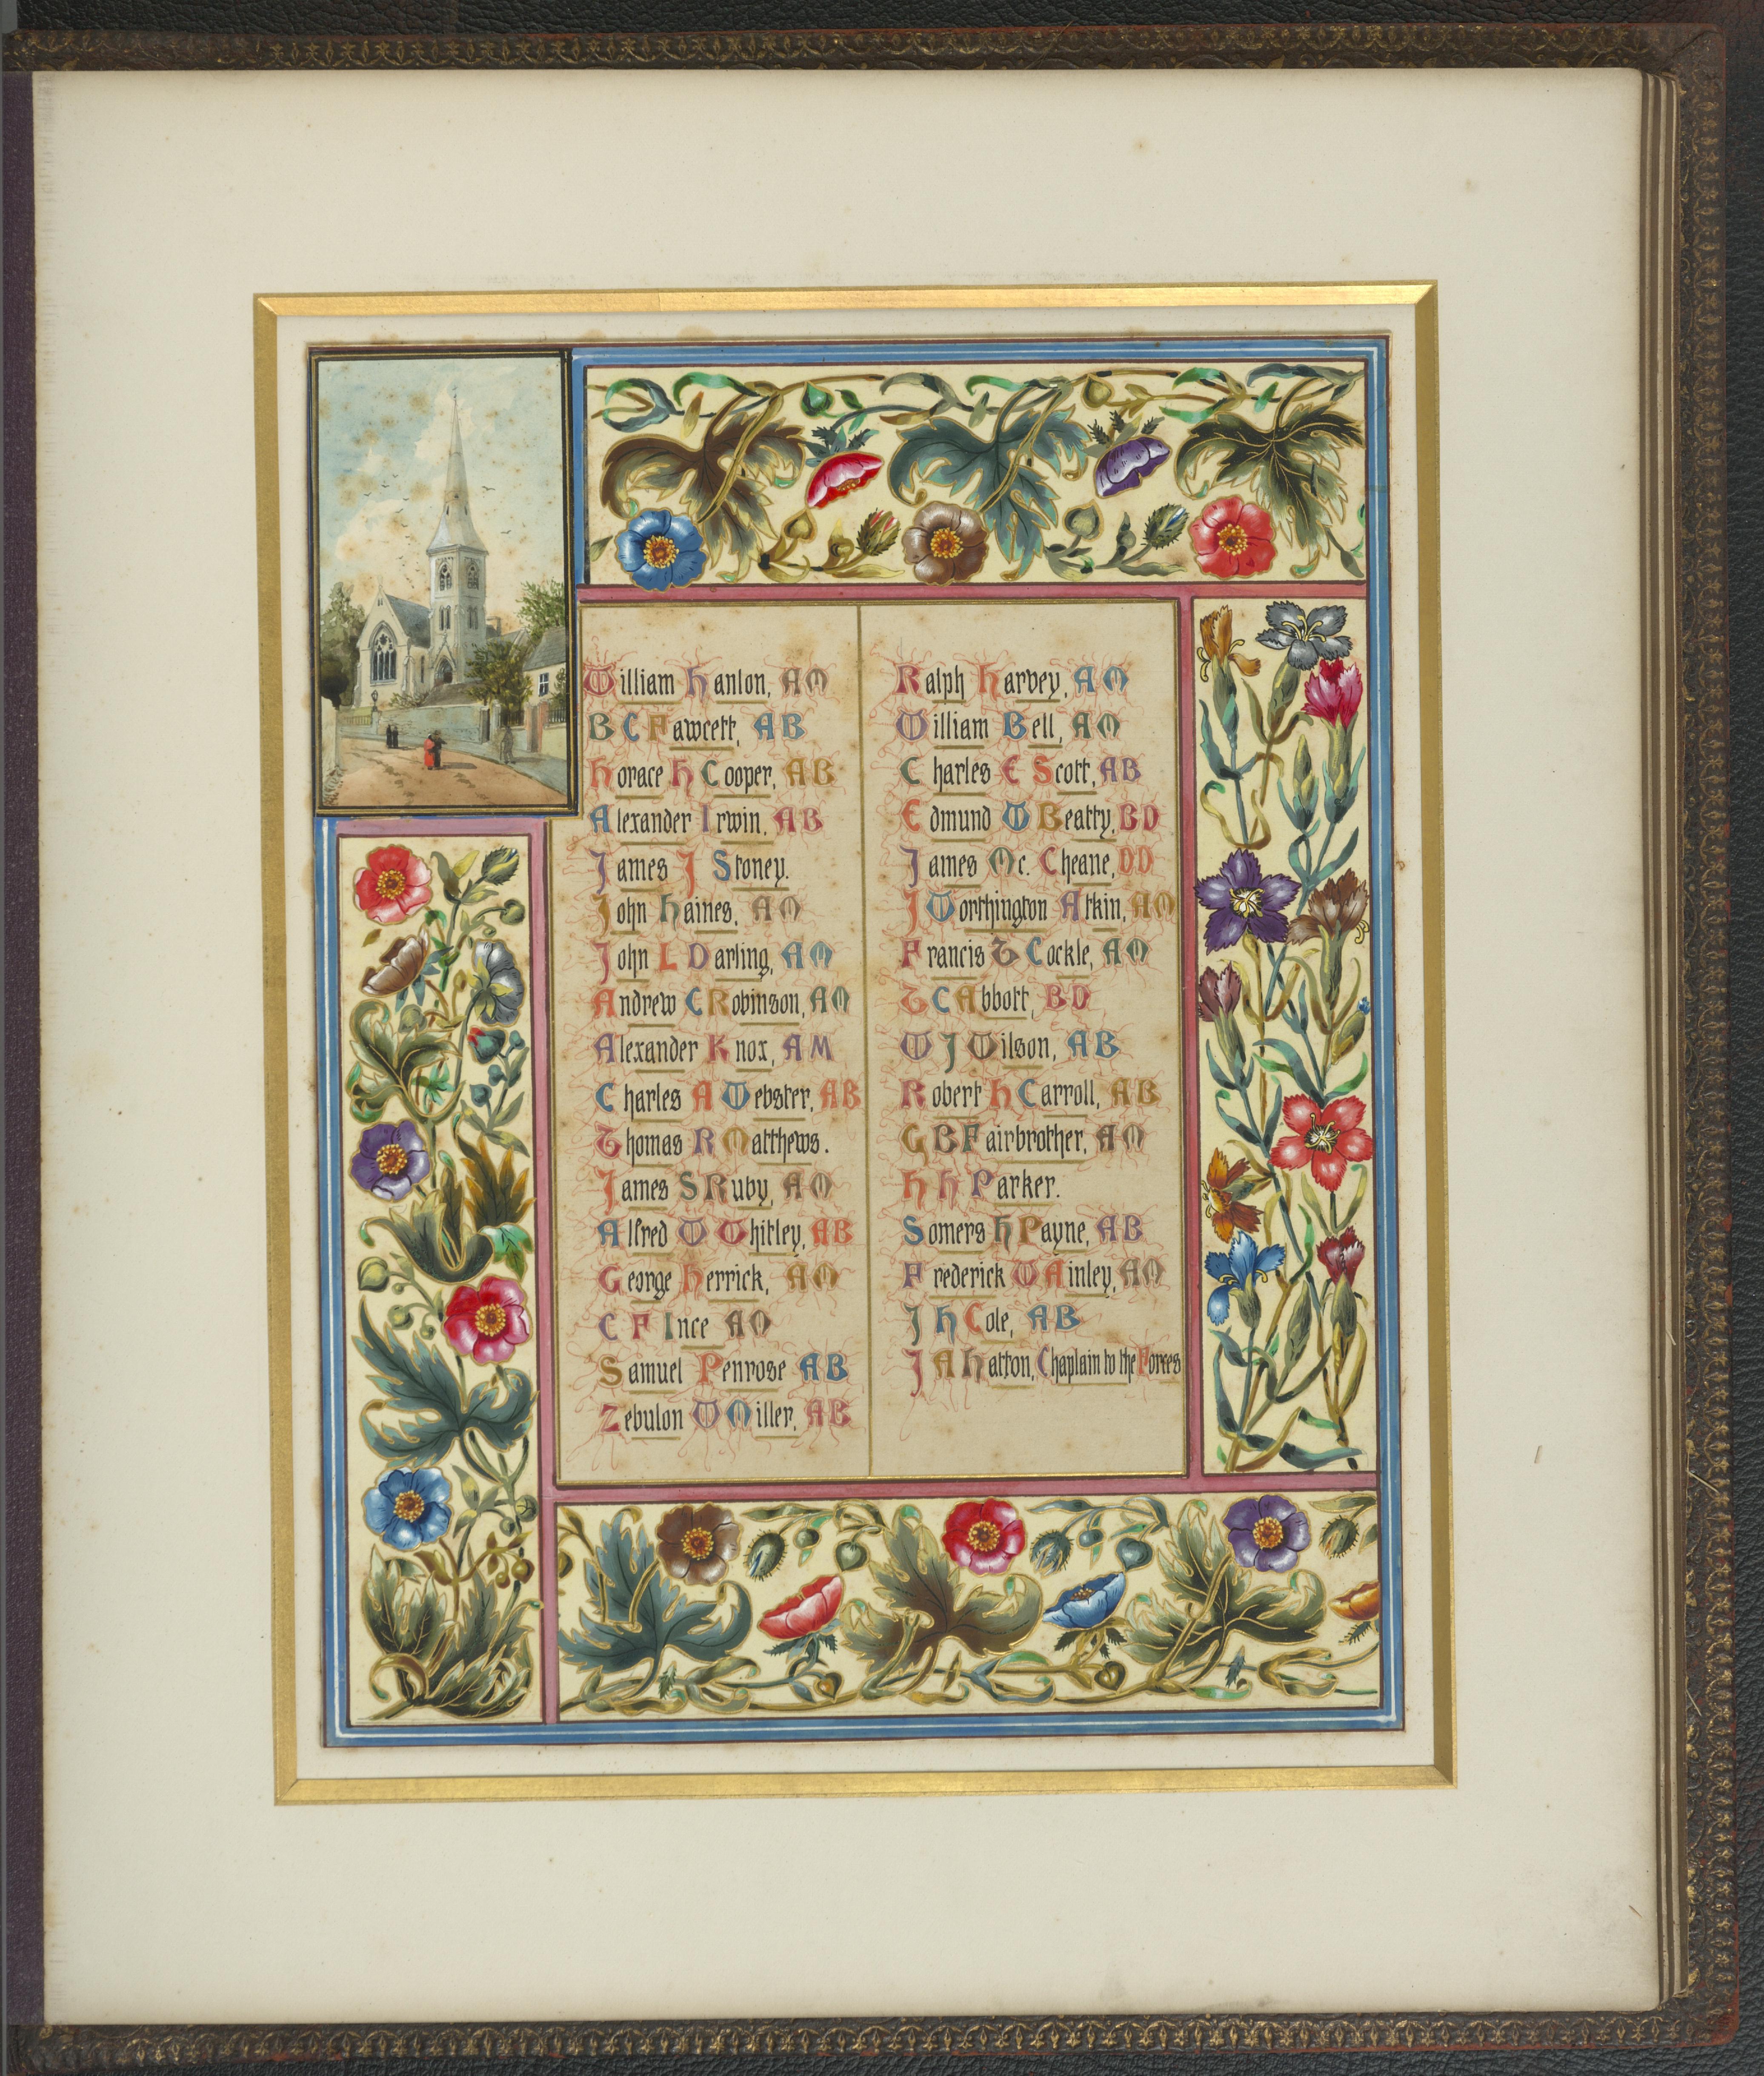 William Hanlon, AM
B C Fawcett, AB
Horace H Cooper, AB
Alexander Irwin, AB
James J Stoney.
John Haines, AM
John L Darling, AM
Andrew C Robinson, AM
Alexander Knox, AM
Charles A Webster, AB
Thomas R Matthews.
James S Ruby, AM
Alfred W Whitley, AB
George Herrick, AM
C F Ince AM
Samuel Penrose AB
Zebulon W Miller, AB
Ralph Harvey, AM
William Bell, AM
Charles E Scott, AB
Edmund W Beatty, BD
James Mc. Cheane, DD
J Worthington Atkin, AM
Francis T Cockle, AM
T C Abbott, BD
W J Wilson, AB
Robert H Carroll, AB
G B Fairbrother, AM
H H Parker.
Somers H Payne, AB
Frederick W Ainley, AM
J H Cole, AB
J A Hatton, Chaplain to the Forces